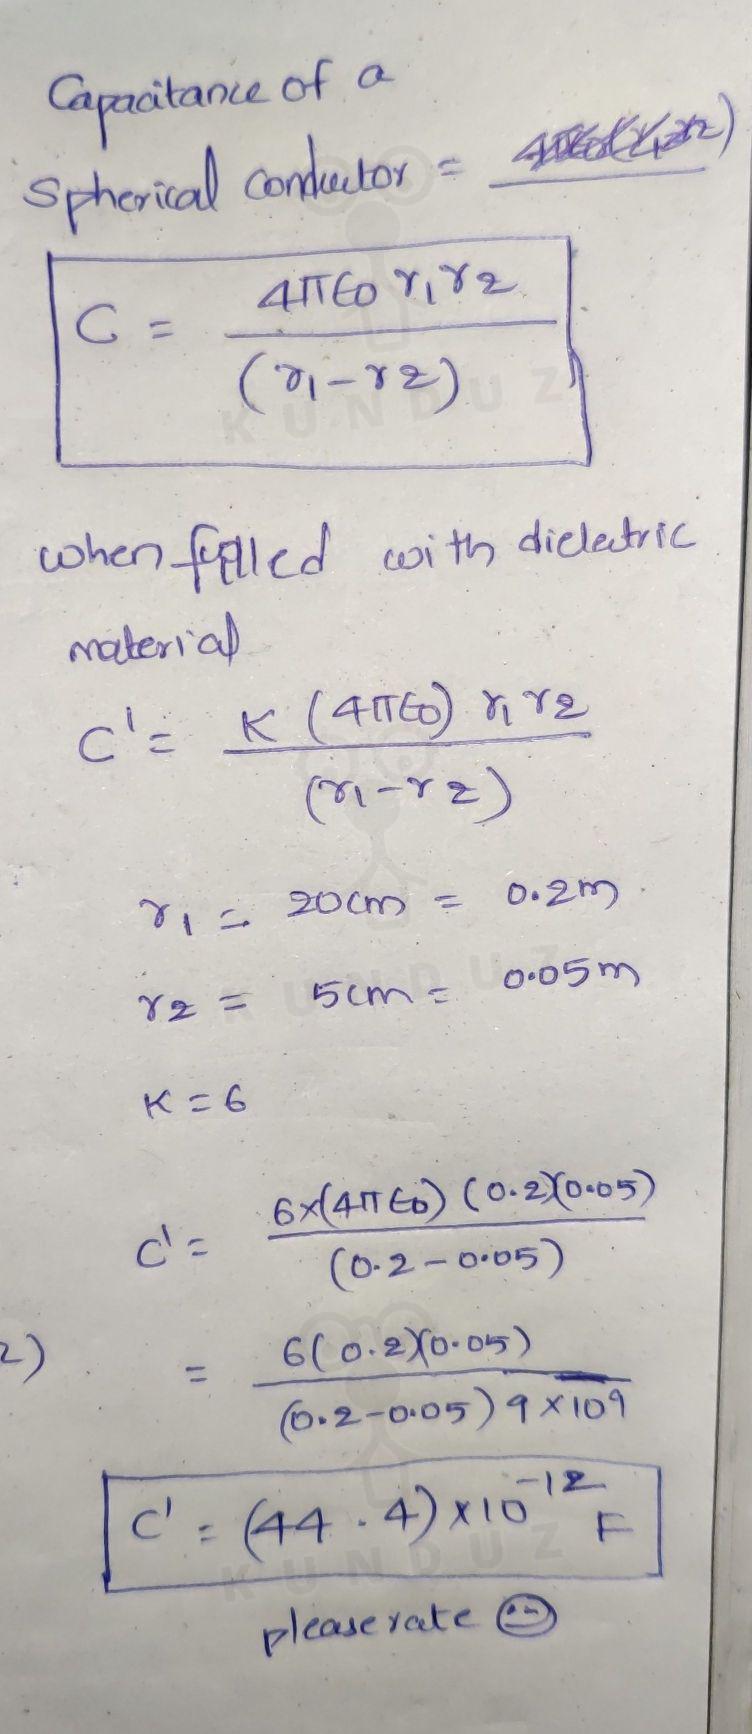 Capacitance of a
Spherical conductor =
C = 4πϵ0 r1 r2 / (r1 - r2)
KUNDUZ
when filled with dielectric
material
C' = K (4πϵ0) r1 r2 / (r1 - r2)
r1 = 20cm = 0.2m
r2 = 5cm = 0.05m
KUNDUZ
K = 6
C' = 6×(4πϵ0) (0.2)(0.05) / (0.2 - 0.05)
2)
= 6(0.2)(0.05) / (0.2-0.05) 9 × 10^9
C' = (44.4) × 10^-12 F
KUNDUZ
please rate